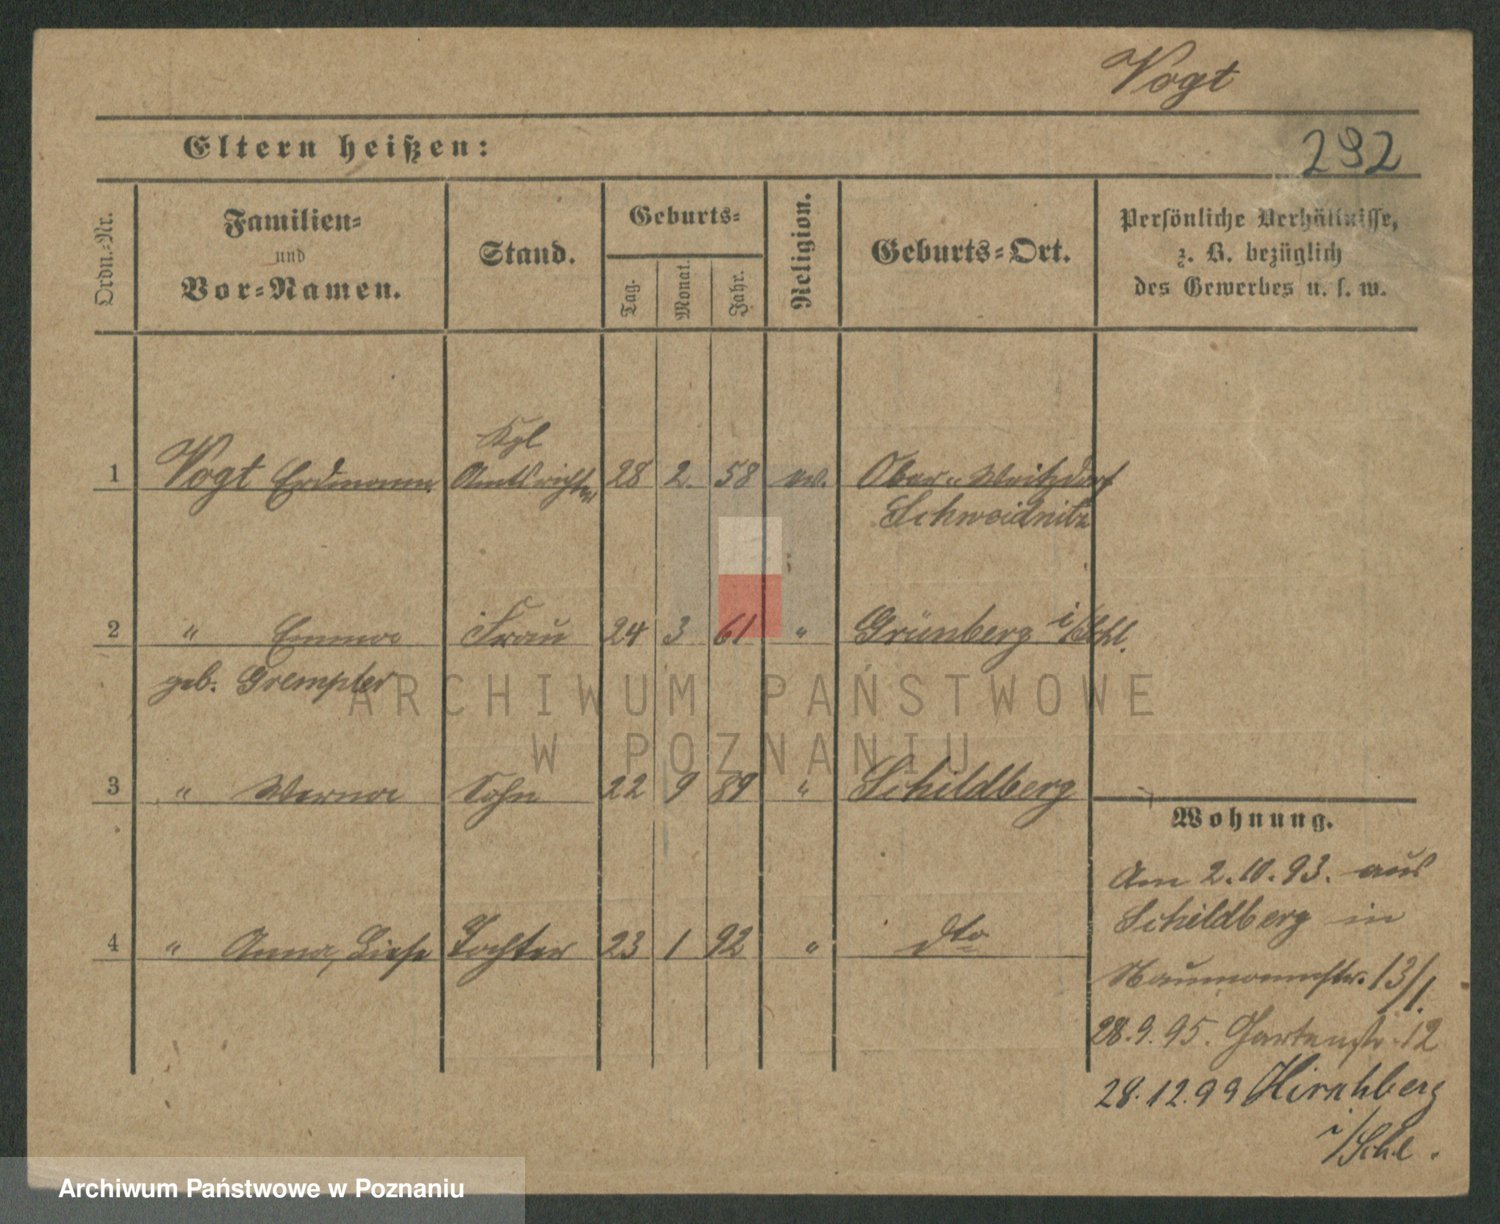 Vogt
Eltern heißen:
292
Ordn.-Nr.
Familien-
und
Vor-Namen.
Stand.
Geburts-
Tag.
Monat.
Jahr.
Religion.
Geburts-Ort.
Persönliche Verhältnisse,
z. B. bezüglich
des Gewerbes u. s. w.
Kgl
1 Vogt Erdmann Amtsrichter 28 2. 58 ev. Ober
Schweidnitz
2 " Emma Frau 24 3 61 " Grünberg i/Schl.
geb. Grempler
ARCHIWUM PAŃSTWOWE
W POZNANIU
3 " Werner Sohn 22 9 89 " Schildberg
Wohnung.
Am 2.10.93. aus
Schildberg in
4 " Anna, Liese Tochter 23 1 92 " dto
Naumannstr. 13/1.
28.9.95. Gartenstr. 12
28.12.99 Hirschberg
i/Schl.
Archiwum Państwowe w Poznaniu